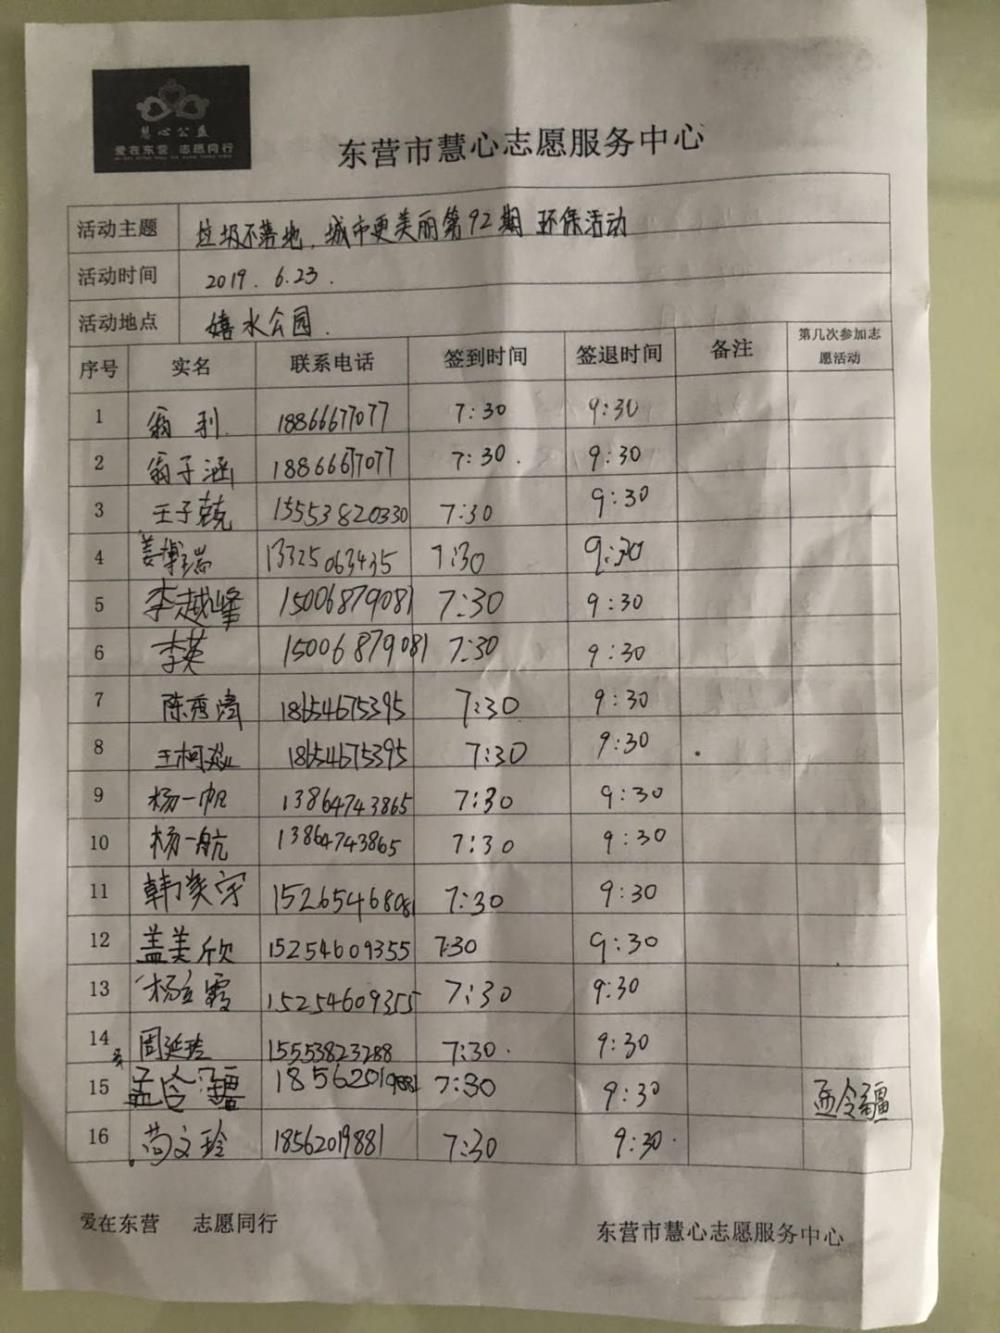 慧心公益
爱在东营 志愿同行
东营市慧心志愿服务中心
活动主题 垃圾不落地，城市更美丽第92期 环保活动
活动时间 2019.6.23.
活动地点 嬉水公园.
序号 实名 联系电话 签到时间 签退时间 备注 第几次参加志愿活动
1 翁利 18866677077 7:30 9:30
2 翁子涵 18866677077 7:30. 9:30
3 王子乾 15553820330 7:30 9:30
4 姜博瑞 13325063435 7:30 9:30
5 李越峰 15006879081 7:30 9:30
6 李英 15006879081 7:30 9:30
7 陈秀清 18654675395 7:30 9:30
8 王柯 18654675395 7:30 9:30
9 杨一帆 13864743865 7:30 9:30
10 杨一航 13864743865 7:30 9:30
11 韩奕宇 15265468081 7:30 9:30
12 盖美欣 15254609355 7:30 9:30
13 杨立霞 15254609355 7:30 9:30
14 周延玲 15553823288 7:30. 9:30
15 孟令疆 18562019881 7:30 9:30 孟令疆
16 尚文玲 18562019881 7:30 9:30.
爱在东营 志愿同行 东营市慧心志愿服务中心